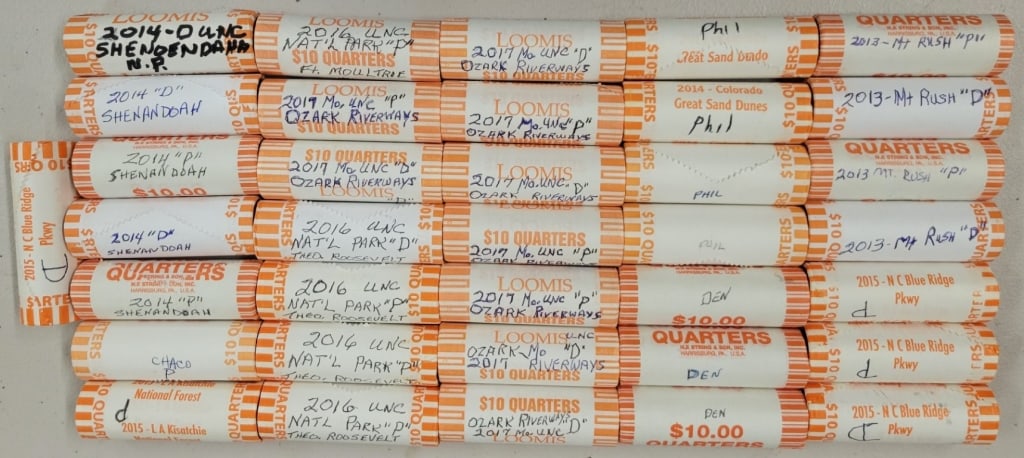 LOOMIS
2014-D UNC
SHENDENDAHH
N.P.
$10 Q
QUARTERS
2014 "D"
SHENANDOAH
2014 "P"
SHENANDOAH
$10.00
2014 "D"
SHENANDOAH
QUARTERS
N.F. STRING & SON, INC.
HARRISBURG, PA., U.S.A.
2014 "P"
SHENANDOAH
CHACO
P
National Forest
P
2015 - LA Kisatchie
2015 - N C Blue Ridge
Pkwy
D
LOOMIS
2016 UNC
NAT'L PARK "D"
$10 QUARTERS
FT. MOULTRIE
2017 MO. UNC "P"
OZARK RIVERWAYS
$10 QUARTERS
$10 QUARTERS
2017 MO. UNC "D"
OZARK RIVERWAYS
LOOMIS
2016 UNC
NAT'L PARK "D"
THEO. ROOSEVELT
2016 UNC
NAT'L PARK "P"
THEO. ROOSEVELT
2016 UNC
NAT'L PARK "P"
THEO. ROOSEVELT
2016 UNC
NATL PARK "P"
THEO. ROOSEVELT
LOOMIS
2017 MO. UNC "D"
OZARK RIVERWAYS
$10 QUARTERS
LOOMIS
2017 MO. UNC "P"
OZARK RIVERWAYS
2017 MO. UNC. D"
OZARK RIVERWAYS
$10 QUARTERS
2017 MO. UNC "P"
LOOMIS
2017 MO. UNC "P"
OZARK RIVERWAYS
LOOMIS
UNC
OZARK-MO "D"
2017 RIVERWAYS
$10 QUARTERS
$10 QUARTERS
OZARK RIVERWAYS
2017 MO. UNC D"
LOOMIS
Phil
2014 - Colorado
Great Sand Dunes
Phil
PHIL
PHIL
DEN
$10.00
QUARTERS
N.F. STRING & SON, INC.
HARRISBURG, PA., U.S.A.
DEN
DEN
$10.00
QUARTERS
QUARTERS
2013-MT RUSH "P"
2013-MT RUSH "D"
QUARTERS
N.F. STRING & SON, INC.
HARRISBURG, PA., U.S.A.
2013 MT. RUSH "P"
2013-MT RUSH "D"
2015 - N C Blue Ridge
Pkwy
d
2015 - N C Blue Ridge
Pkwy
d
2015 - N C Blue Ridge
Pkwy
d